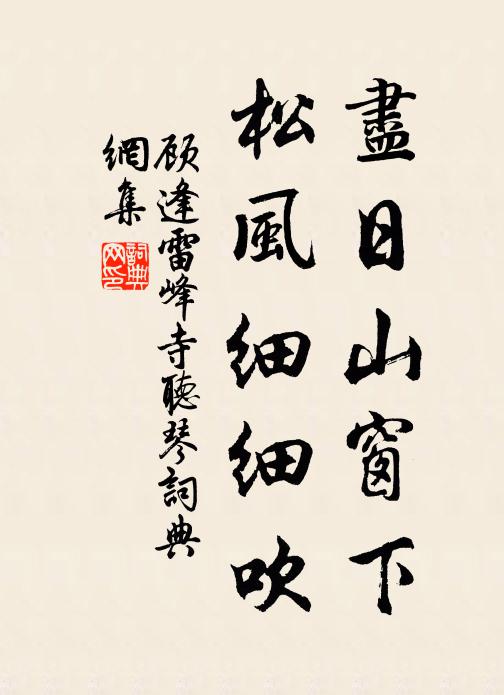 盡日山窗下
松風細細吹
顾逢雷峰寺聽琴詞典
網集
詞典
网印